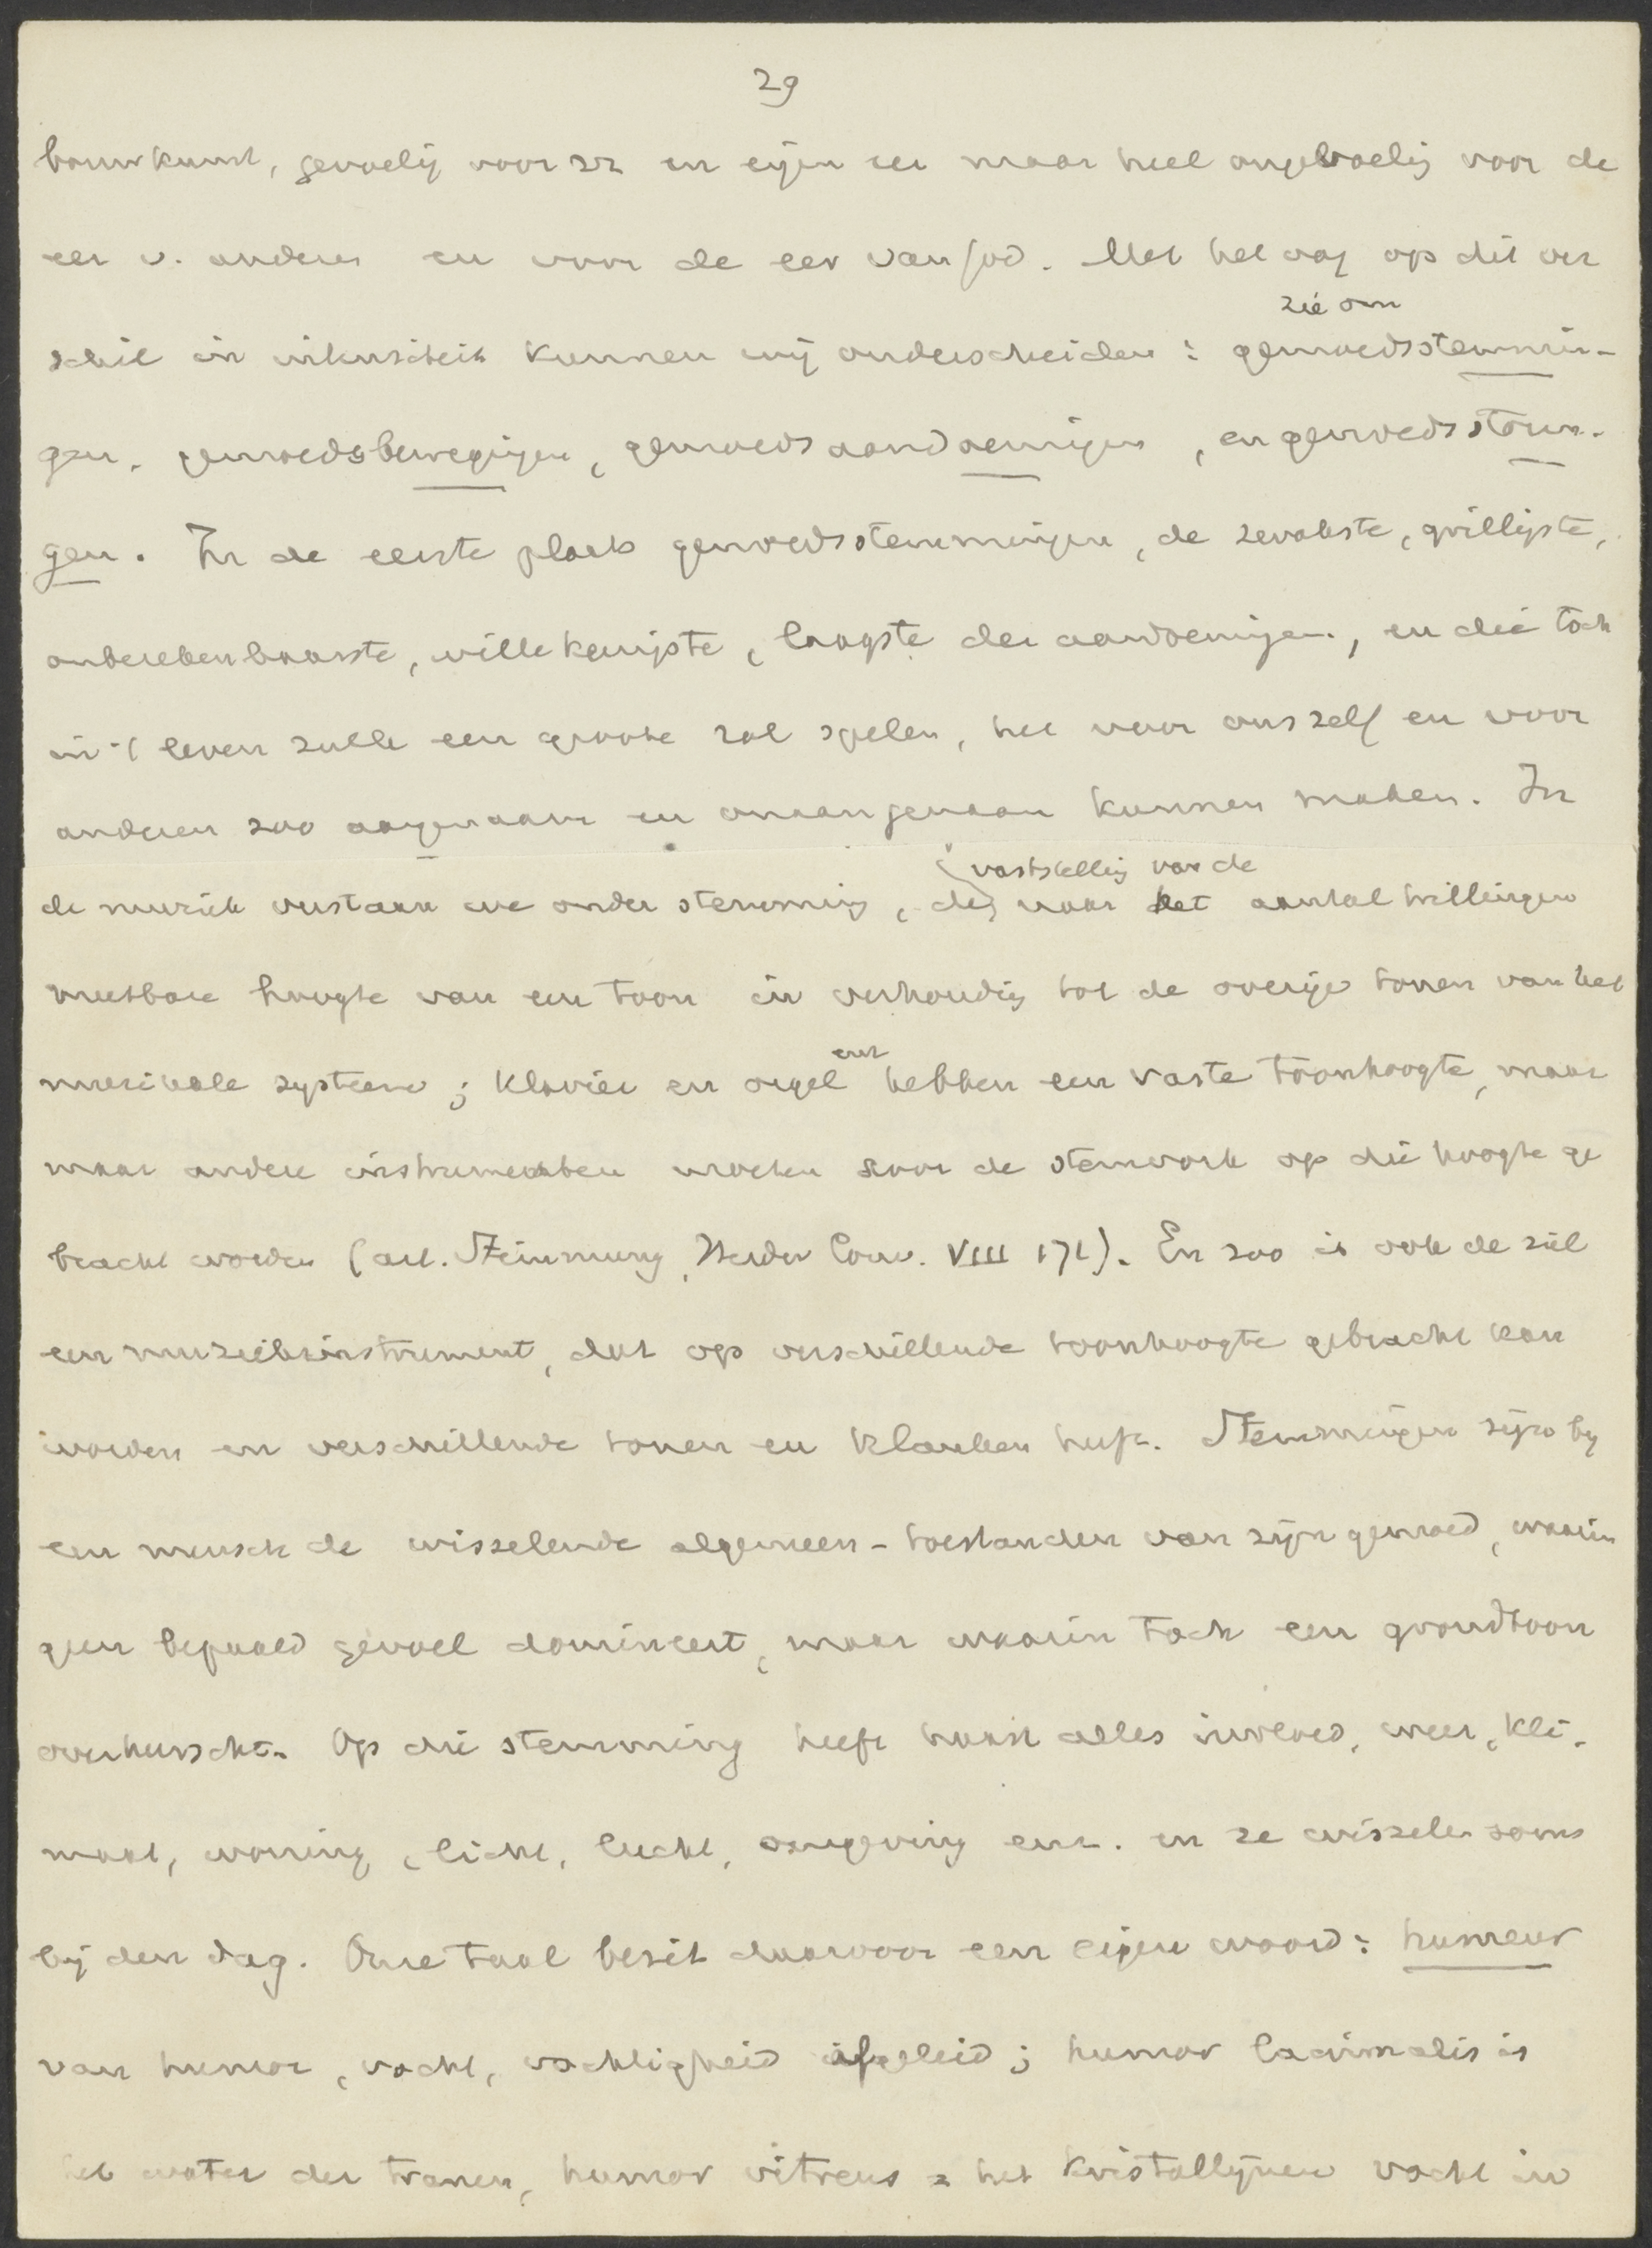 29
bouwkunst, gevoelig voor zn en eigen eer maar heel ongevoelig voor de
eer v. anderen en voor de eer van God. Met het oog op dit ver
zie om
schil in intensiteit kunnen wij onderscheiden: gemoedsstemmin-
gen, gemoedsbewegingen, gemoedsaandoeningen, en gemoedsstorin-
gen. In de eerste plaats gemoedsstemmingen, de zwakste, grilligste,
onberekenbaarste, willekeurigste, laagste der aandoeningen, en die toch
in 't leven zulk een groote rol spelen, het voor ons zelf en voor
anderen zoo aangenaam en onaangenaam kunnen maken. In
vaststelling van de
de muziek verstaan we onder stemming, de naar het aantal trillingen
meetbare hoogte van een toon in verhouding tot de overige tonen van het
enz
muzikale systeem; klavier en orgel hebben een vaste toonhoogte, maar
maar andere instrumenten moeten door de stemvork op die hoogte ge
bracht worden (art. Stimmung, Herder Conv. VIII 171). En zoo is ook de ziel
een muziekinstrument, dat op verschillende toonhoogte gebracht kan
worden en verschillende tonen en klanken heeft. Stemmingen zijn bij
een mensch de wisselende algemeen-toestanden van zijn gemoed, waarin
geen bepaald gevoel domineert, maar waarin toch een grondtoon
overheerscht. Op die stemming heeft haast alles invloed, weer, kli-
maat, woning, licht, lucht, omgeving enz. en ze wisselen soms
bij den dag. Onze taal bezit daarvoor een eigen woord: humeur
van humor, vocht, vochtigheid afgeleid; humor lacrimalis is
het water der tranen, humor vitreus = het kristallijnen vocht in